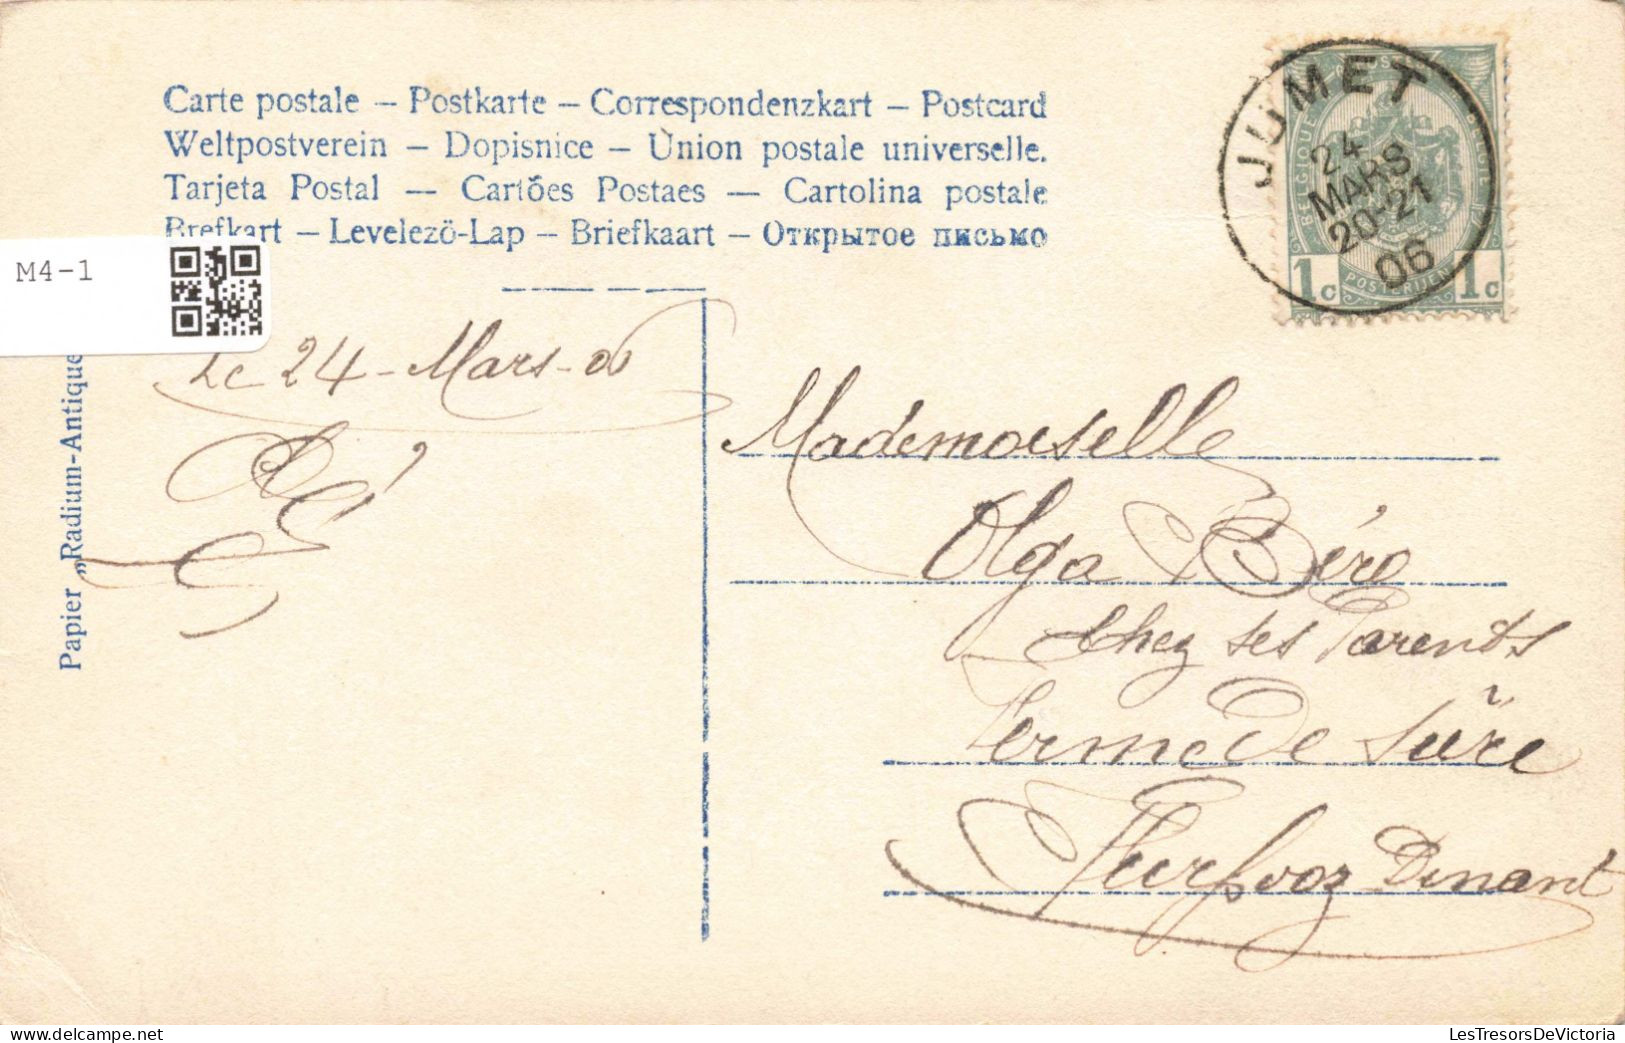 Carte postale – Postkarte – Correspondenzkart – Postcard
Weltpostverein – Dopisnice – Union postale universelle.
Tarjeta Postal — Cartões Postaes — Cartolina postale
Brefkart – Levelezö-Lap – Briefkaart – Открытое письмо
M4-1
JUMET
24
MARS
20-21
06
BELGIQUE
BELGIE
POSTERIJEN
1c
1c
Le 24 - Mars - 06
Papier „Radium-Antique
Mademoiselle
Olga Béro
Chez ses Parents
Ferme de
Furfooz Dinant
LesTresorsDeVictoria.com